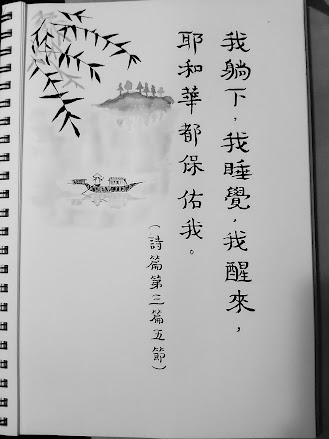 我躺下，我睡覺，我醒來，
耶和華都保佑我。
（詩篇第三篇五節）